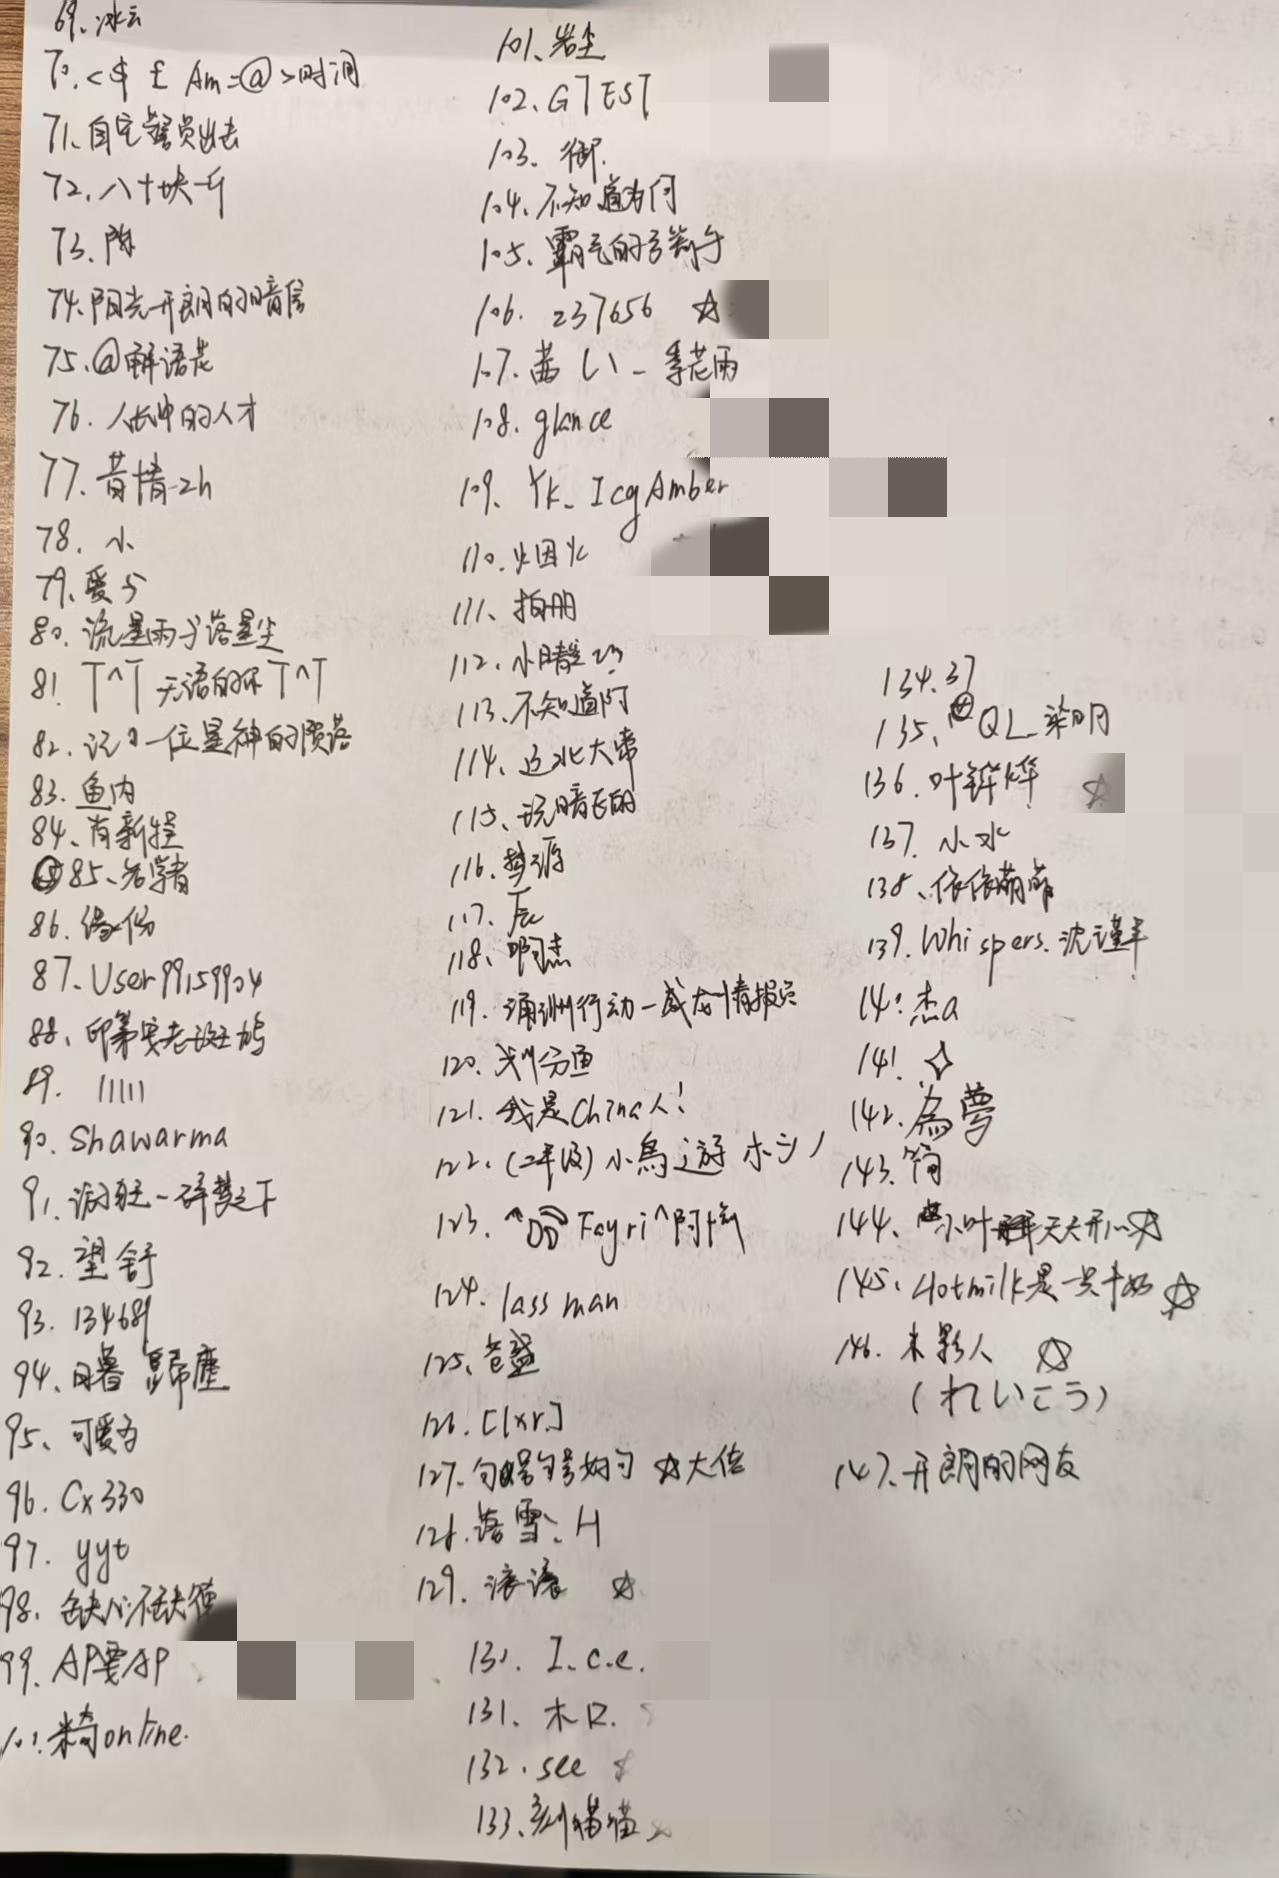 69、冰云
70、<$ £ Am=@>时间
71、自宅警员出去
72、八十块一斤
73、陈
74、阳光开朗的暗信
75、@解语花
76、人中的人才
77、昔情-zh
78、小
79、爱与
80、流星雨亍落星尘
81、T^T 无语的坏T^T
82、记 一位星神的陨落
83、鱼内
84、肖新
85、名学者
86、缘份
87、User99159904
88、印第安老斑鸠
89、11111
90、Shawarma
91、一碎梦之下
92、望舒
93、134689
94、日暮 歸塵
95、可爱
96、Cx330
97、yyt
98、缺心不缺德
99、AP要AP
100、米奇online.
101、岩尘
102、GTEST
103、御.
104、不知道为何
105、霸气的弓箭手
106、237656 ☆
107、茜 しい 一季花雨
108、glance
109、YK_IcgAmber
110、烟火
111、拍册
112、小
113、不知道阿
114、北大帝
115、玩暗区的
116、梦源
117、辰
118、啊杰
119、洲行动一威龙情报员
120、分鱼
121、我是China人!
122、(二年级)小鳥遊 ホシノ
123、Fayri^阿
124、lass man
125、苍盛
126、[lxr.]
127、☆大佬
128、落雪、H
129、滚滚 ☆
130、I.c.e.
131、木口.
132、see ☆
133、刻猫猫
134、37
135、QL_染明
136、叶铧烨 ☆
137、小水
138、依依萌萌
139、Whispers.沈谨年
140、杰a
141、✧
142、為夢
143、简
144、小叶天天开心☆
145、Hotmilk是一只牛奶☆
146、木影人 ☆
(れいこう)
147、开朗的网友